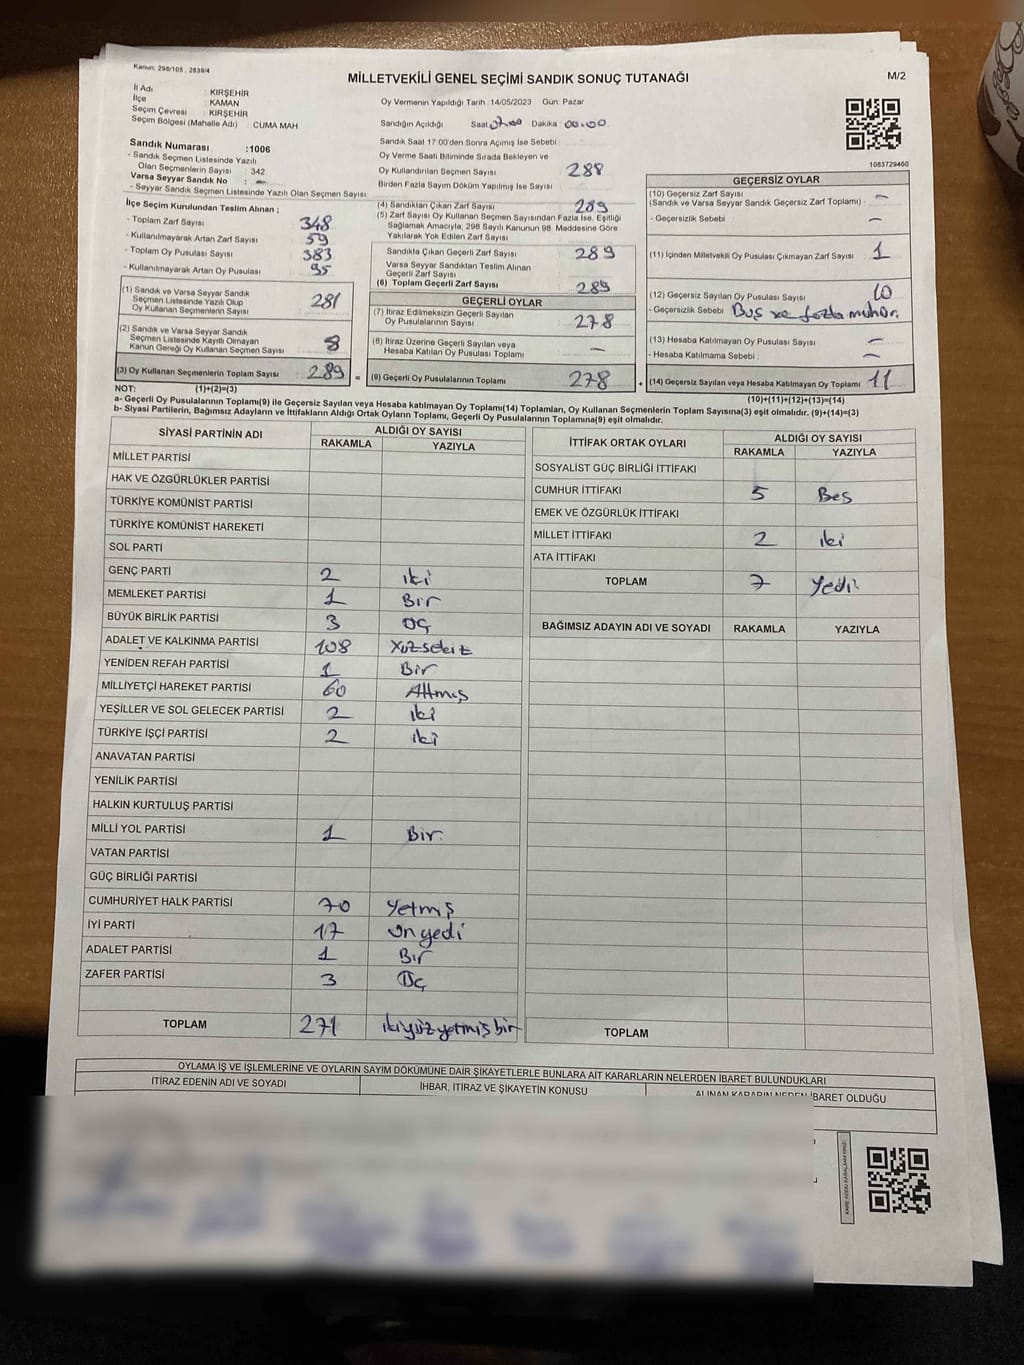 Kanun: 298/105 , 2839/4
MİLLETVEKİLİ GENEL SEÇİMİ SANDIK SONUÇ TUTANAĞI
M/2
İl Adı : KIRŞEHİR
İlçe : KAMAN
Seçim Çevresi : KIRŞEHİR
Seçim Bölgesi (Mahalle Adı) : CUMA MAH
Sandık Numarası :1006
- Sandık Seçmen Listesinde Yazılı
Olan Seçmenlerin Sayısı : 342
Varsa Seyyar Sandık No : -
- Seyyar Sandık Seçmen Listesinde Yazılı Olan Seçmen Sayısı
İlçe Seçim Kurulundan Teslim Alınan ;
- Toplam Zarf Sayısı 348
- Kullanılmayarak Artan Zarf Sayısı 59
- Toplam Oy Pusulası Sayısı 383
- Kullanılmayarak Artan Oy Pusulası 95
(1) Sandık ve Varsa Seyyar Sandık
Seçmen Listesinde Yazılı Olup
Oy Kullanan Seçmenlerin Sayısı 281
(2) Sandık ve Varsa Seyyar Sandık
Seçmen Listesinde Kayıtlı Olmayan
Kanun Gereği Oy Kullanan Seçmen Sayısı 8
(3) Oy Kullanan Seçmenlerin Toplam Sayısı 289
Oy Vermenin Yapıldığı Tarih :14/05/2023 Gün: Pazar
Sandığın Açıldığı Saat Dakika : 00.00
Sandık Saat 17:00'den Sonra Açılmış İse Sebebi :
Oy Verme Saati Bitiminde Sırada Bekleyen ve
Oy Kullandırılan Seçmen Sayısı 288
Birden Fazla Sayım Döküm Yapılmış İse Sayısı
(4) Sandıktan Çıkan Zarf Sayısı 289
(5) Zarf Sayısı Oy Kullanan Seçmen Sayısından Fazla İse, Eşitliği
Sağlamak Amacıyla, 298 Sayılı Kanunun 98. Maddesine Göre
Yakılarak Yok Edilen Zarf Sayısı
Sandıkta Çıkan Geçerli Zarf Sayısı 289
Varsa Seyyar Sandıktan Teslim Alınan
Geçerli Zarf Sayısı
(6) Toplam Geçerli Zarf Sayısı 289
GEÇERLİ OYLAR
(7) İtiraz Edilmeksizin Geçerli Sayılan
Oy Pusulalarının Sayısı 278
(8) İtiraz Üzerine Geçerli Sayılan veya
Hesaba Katılan Oy Pusulası Toplamı -
= (9) Geçerli Oy Pusulalarının Toplamı 278
1083729460
GEÇERSİZ OYLAR
(10) Geçersiz Zarf Sayısı
(Sandık ve Varsa Seyyar Sandık Geçersiz Zarf Toplamı) : -
- Geçersizlik Sebebi : -
(11) İçinden Milletvekili Oy Pusulası Çıkmayan Zarf Sayısı 1
(12) Geçersiz Sayılan Oy Pusulası Sayısı 10
- Geçersizlik Sebebi : Boş ve fazla mühür.
(13) Hesaba Katılmayan Oy Pusulası Sayısı : -
- Hesaba Katılmama Sebebi : -
+ (14) Geçersiz Sayılan veya Hesaba Katılmayan Oy Toplamı 11
NOT: (1)+(2)=(3)
(10)+(11)+(12)+(13)=(14)
a- Geçerli Oy Pusulalarının Toplamı(9) ile Geçersiz Sayılan veya Hesaba katılmayan Oy Toplamı(14) Toplamları, Oy Kullanan Seçmenlerin Toplam Sayısına(3) eşit olmalıdır. (9)+(14)=(3)
b- Siyasi Partilerin, Bağımsız Adayların ve İttifakların Aldığı Ortak Oyların Toplamı, Geçerli Oy Pusulalarının Toplamına(9) eşit olmalıdır.
SİYASİ PARTİNİN ADI ALDIĞI OY SAYISI
RAKAMLA YAZIYLA
MİLLET PARTİSİ
HAK VE ÖZGÜRLÜKLER PARTİSİ
TÜRKİYE KOMÜNİST PARTİSİ
TÜRKİYE KOMÜNİST HAREKETİ
SOL PARTİ
GENÇ PARTİ 2 iki
MEMLEKET PARTİSİ 1 Bir
BÜYÜK BİRLİK PARTİSİ 3 Üç
ADALET VE KALKINMA PARTİSİ 108 Yüzsekiz
YENİDEN REFAH PARTİSİ 1 Bir
MİLLİYETÇİ HAREKET PARTİSİ 60 Altmış
YEŞİLLER VE SOL GELECEK PARTİSİ 2 iki
TÜRKİYE İŞÇİ PARTİSİ 2 iki
ANAVATAN PARTİSİ
YENİLİK PARTİSİ
HALKIN KURTULUŞ PARTİSİ
MİLLİ YOL PARTİSİ 1 Bir.
VATAN PARTİSİ
GÜÇ BİRLİĞİ PARTİSİ
CUMHURİYET HALK PARTİSİ 70 Yetmiş
İYİ PARTİ 17 Onyedi
ADALET PARTİSİ 1 Bir
ZAFER PARTİSİ 3 Üç
TOPLAM 271 ikiyüzyetmişbir
İTTİFAK ORTAK OYLARI ALDIĞI OY SAYISI
RAKAMLA YAZIYLA
SOSYALİST GÜÇ BİRLİĞİ İTTİFAKI
CUMHUR İTTİFAKI 5 Beş
EMEK VE ÖZGÜRLÜK İTTİFAKI
MİLLET İTTİFAKI 2 iki
ATA İTTİFAKI
TOPLAM 7 Yedi
BAĞIMSIZ ADAYIN ADI VE SOYADI RAKAMLA YAZIYLA
TOPLAM
OYLAMA İŞ VE İŞLEMLERİNE VE OYLARIN SAYIM DÖKÜMÜNE DAİR ŞİKAYETLERLE BUNLARA AİT KARARLARIN NELERDEN İBARET BULUNDUKLARI
İTİRAZ EDENİN ADI VE SOYADI İHBAR, İTİRAZ VE ŞİKAYETİN KONUSU ALINAN KARARIN NEDEN İBARET OLDUĞU
KARE KODU KARALAMAYINIZ!